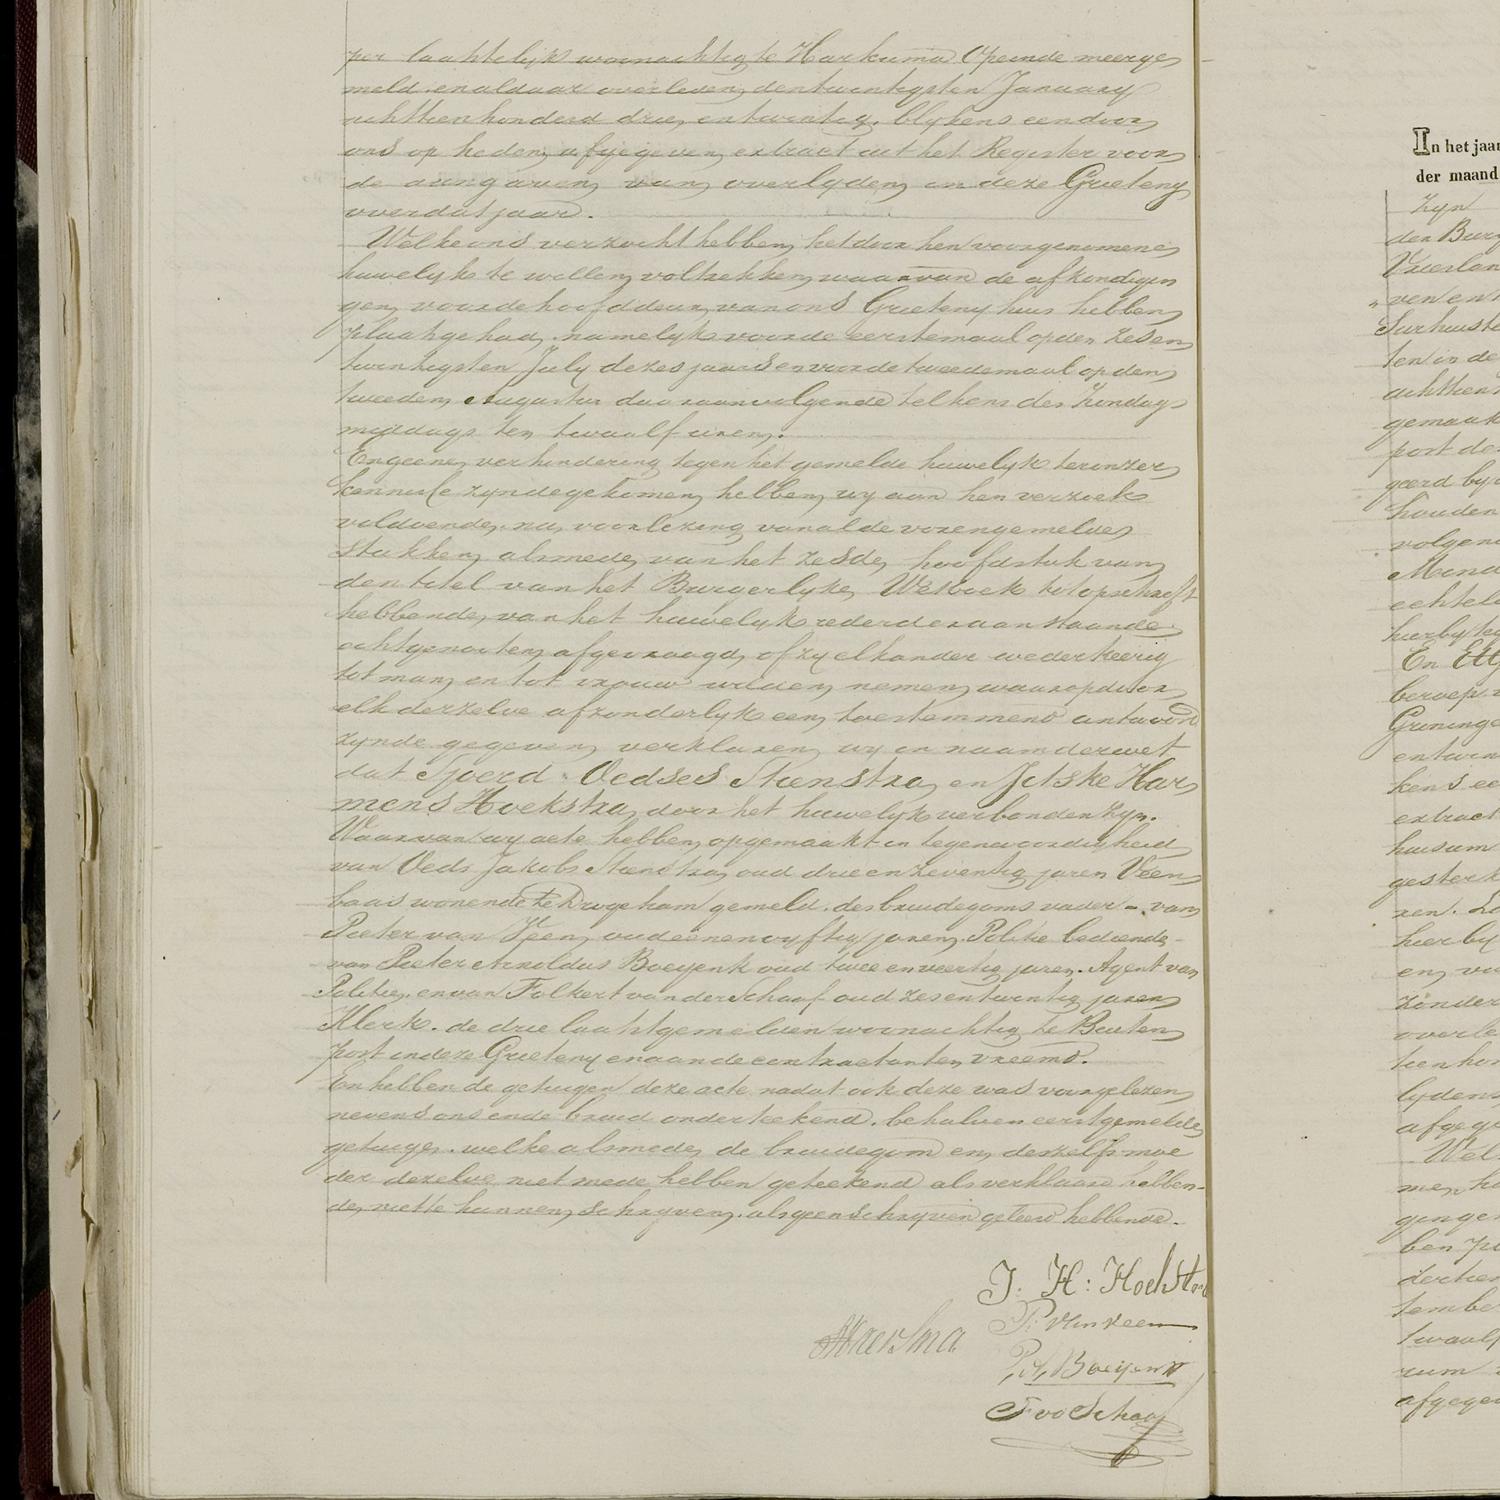 per laatstelyk woonachtig te Harkema Opeinde meerge
meld. en aldaar overleden den twintigsten January
achttienhonderd drie en twintig. blykens een door
ons op heden afgegeven extract uit het Register voor
de aangaven van overlyden in deze Grieteny
voor dat jaar.
Welke ons verzocht hebben het door hen voorgenomene
huwelyk te willen voltrekken waarvan de afkondigin
gen voor de hoofddeur van ons Grieteny huis hebben
plaats gehad, namelyk voor de eerstemaal op den zesen
twintigsten July dezes jaars en voor de tweedemaal op den
tweeden Augustus daaraanvolgende telkens des Zondags
middags ten twaalf uren.
En geene verhindering tegen het gemelde huwelyk ter onzer
kennisse zynde gekomen hebben wy aan hen verzoek
voldoende, na voorlezing van al de vorengemelde
stukken alsmede van het zesde hoofdstuk van
den titel van het Burgerlyke Wetboek tot opschrift
hebbende van het huwelyk ieder der aanstaande
echtgenooten afgevraagd of zy elkander wederkeerig
tot man en tot vrouw wilden nemen waarop door
elk derzelve afzonderlyk een toestemmend antwoord
zynde gegeven verklaren wy in naam der wet
dat Sjoerd Oedses Steenstra en Jetske Har
mens Hoekstra door het huwelyk verbonden zyn.
Waarvan wy acte hebben opgemaakt in tegenwoordigheid
van Oeds Jakobs Steenstra oud drie en zeventig jaren Veen
baas wonende te Drogeham gemeld. des bruidegoms vader -. van
Pieter van Veen oud eenenvyftig jaren. Politie bediende -
van Pieter Arnoldus Boeyenk oud twee en veertig jaren. Agent van
Politie. en van Folkert van der Schaaf oud zesentwintig jaren
Klerk. de drie laatstgemelden woonachtig te Buiten
post in deze Grieteny en aan de contractanten vreemd.
En hebben de getuigen deze acte nadat ook deze was voorgelezen
nevens ons en de bruid onderteekend. behalven eerstgemelde
getuige. welke alsmede de bruidegom en deszelfs moe
der dezelve niet mede hebben geteekend als verklaard hebben-
de niet te kunnen schryven. als geen schryven geleerd hebbende.
J: H: Hoekstra
P: van veen
P. A. Boeyenk
F vd Schaaf
In het jaar
der maand
zyn
der Burg
Vriesland
ven en
Surhuiste
ten in de
achttien
gemaak
port de
geerd by
houden
volgen
Mind
echteli
hierby
En
beroep
Groninge
en twin
kens ee
extract
huisum
gesterk
ren.
hier by
en vo
zonder
overle
tien hon
lydens
afgege
Wel
men
gen
ben
dertien
tember
twaalf
rum
afgege